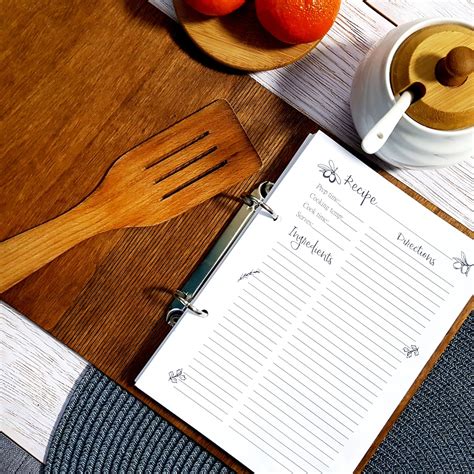 Recipe
Prep time:
Cooking temp:
Cook time:
Serves:
Ingredients
Directions